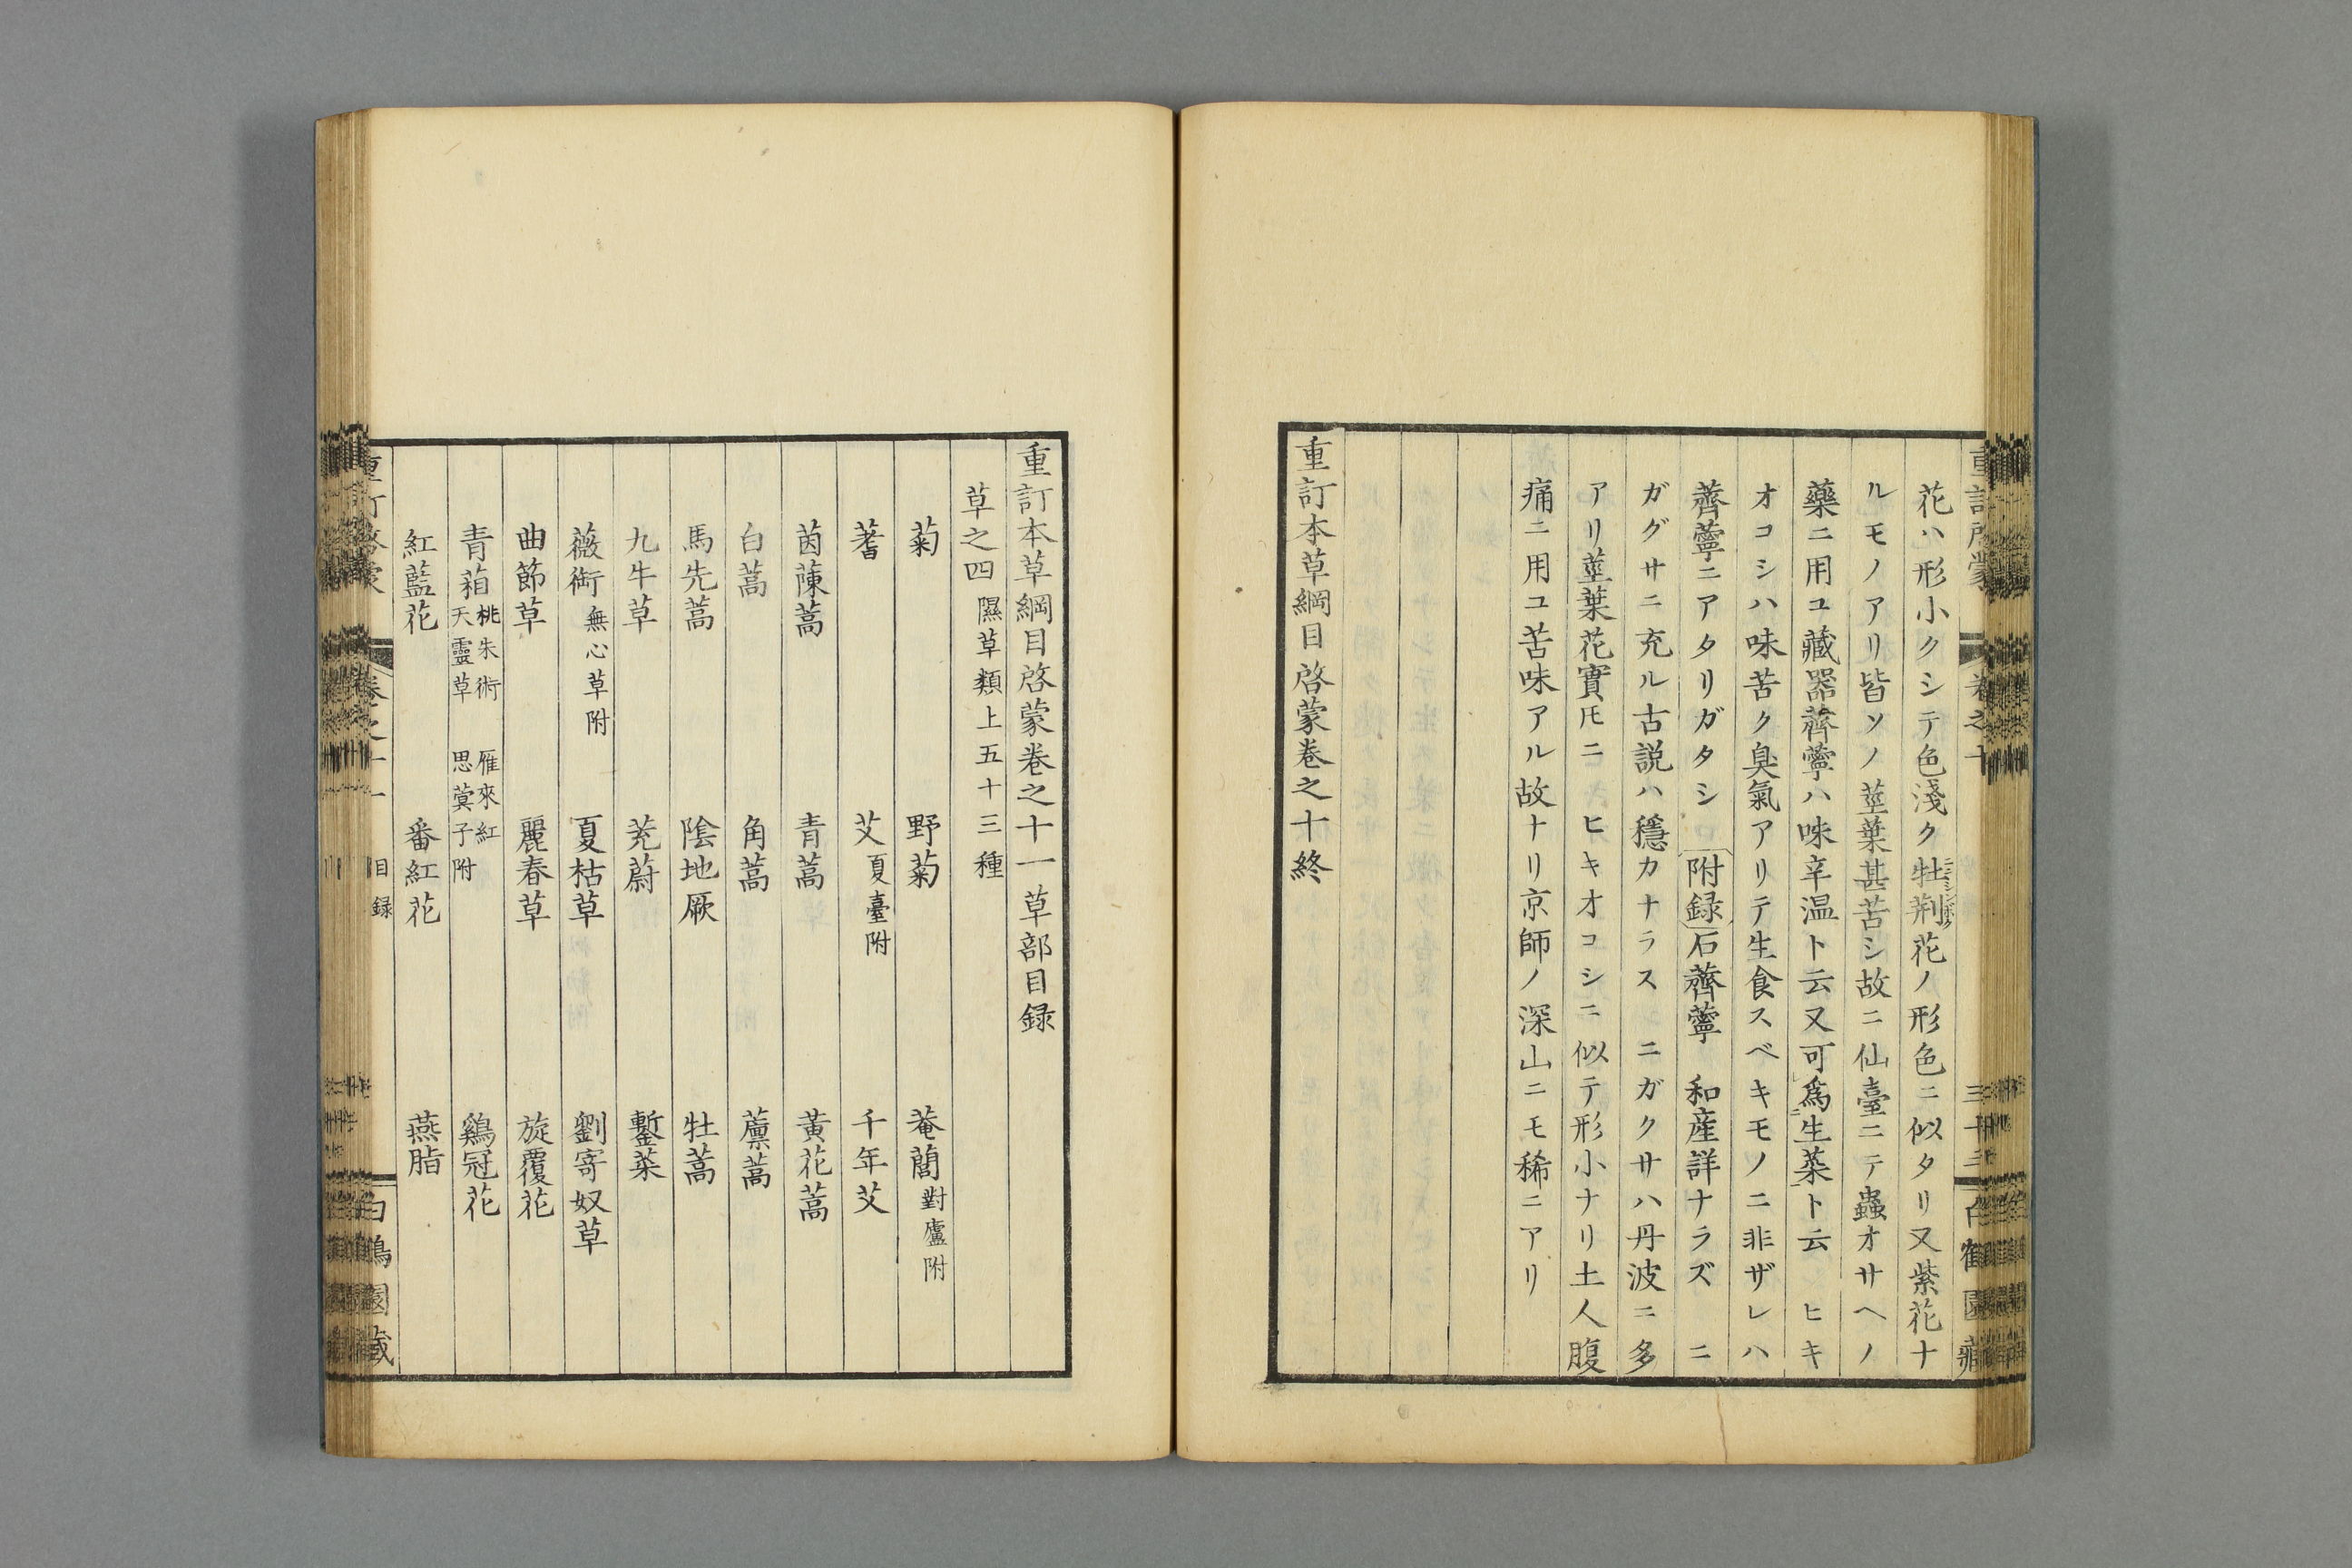 花ハ形小クシテ色淺ク牡荊花ノ形色ニ似タリ又紫花ナ
ルモノアリ皆ソノ莖葉甚苦シ故ニ仙臺ニテ蟲オサヘノ
藥ニ用ユ藏器薺薴ハ味辛温ト云又可爲生菜ト云 ヒキ
オコシハ味苦ク臭氣アリテ生食スベキモノニ非ザレハ
薺薴ニアタリガタシ 附録 石薺薴 和産詳ナラズ ニ
ガグサニ充ル古説ハ穩カナラス ニガクサハ丹波ニ多
アリ莖葉花實𪜈ニヒキオコシニ似テ形小ナリ土人腹
痛ニ用ユ苦味アル故ナリ京師ノ深山ニモ稀ニアリ
重訂本草綱目啓蒙巻之十終
重訂本草綱目啓蒙巻之十一 草部目録
草之四 隰草類上五十三種
菊 野菊 菴䕡 對廬附
蓍 艾 夏臺附 千年艾
茵蔯蒿 青蒿 黃花蒿
白蒿 角蒿 藁蒿
馬先蒿 陰地厥 牡蒿
九牛草 茺蔚 鏨菜
薇銜 無心草附 夏枯草 劉寄奴草
曲節草 麗春草 旋覆花
青葙 桃朱術 雁來紅 天靈草 思蓂子附 鷄冠花
紅藍花 番紅花 燕脂
目録